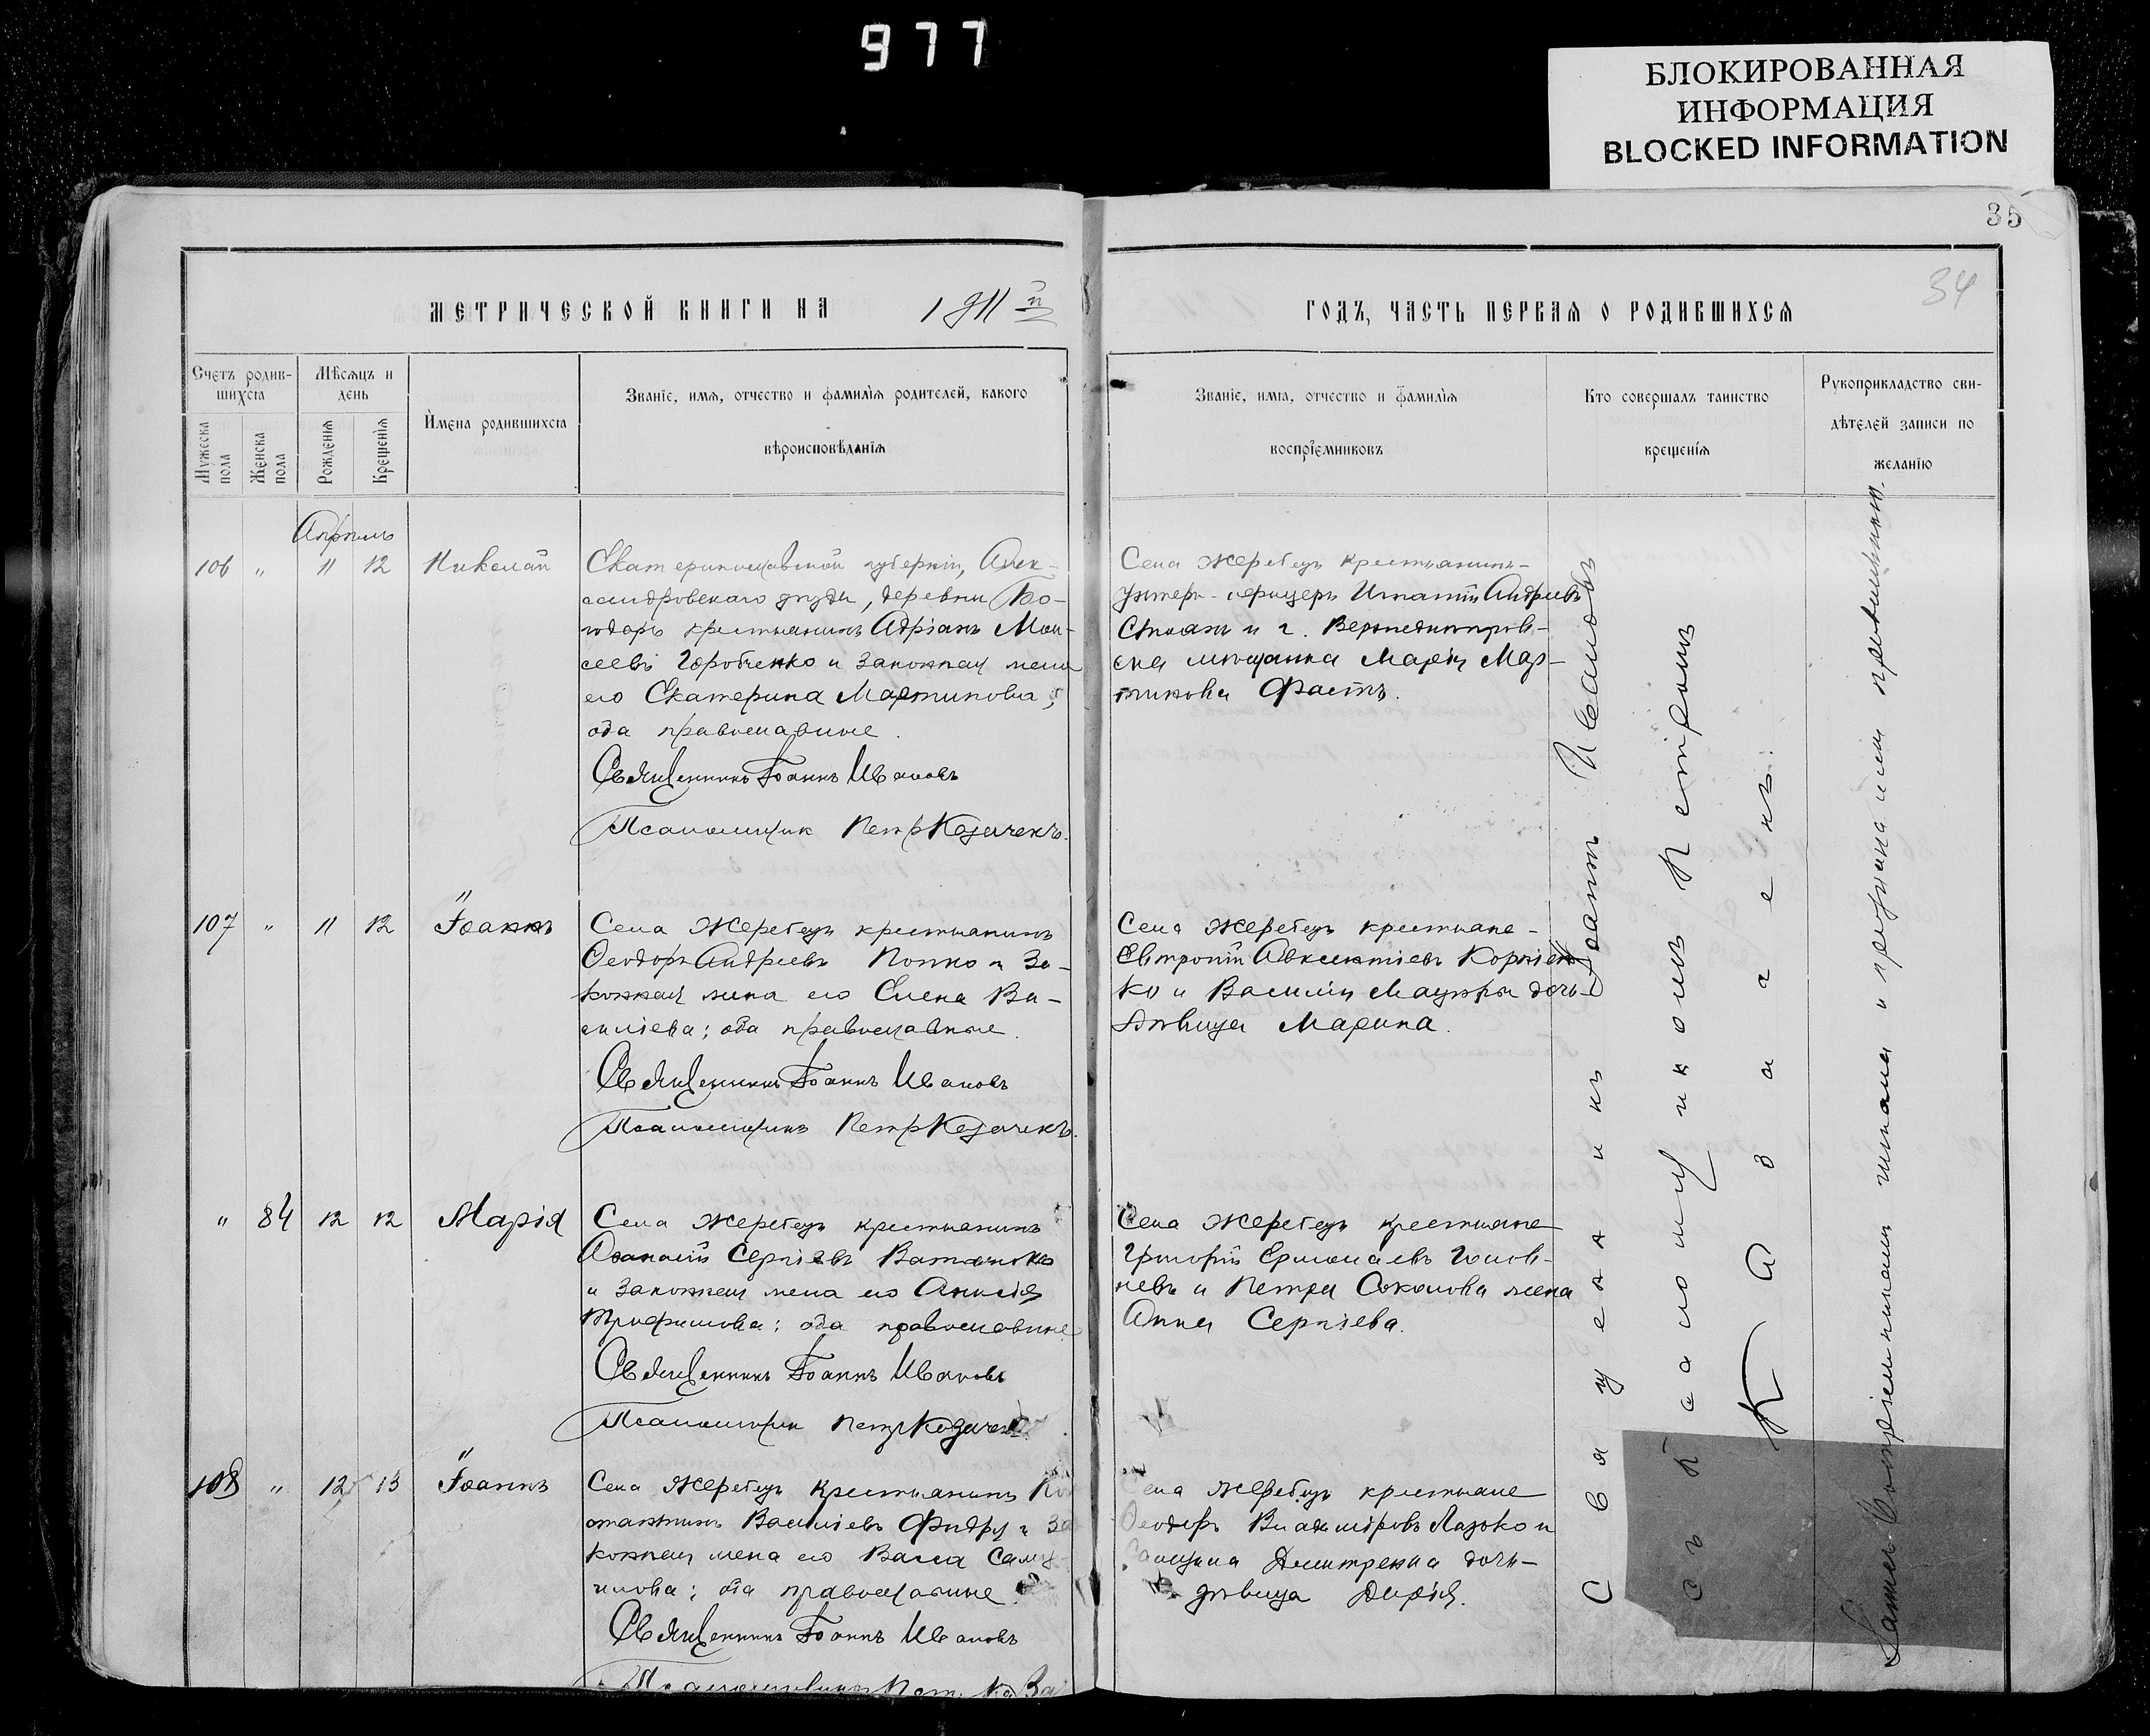 977
БЛОКИРОВАННАЯ
ИНФОРМАЦИЯ
BLOCKED INFORMATION
35
34
МЕТРИЧЕСКОЙ КНИГИ НА 1911й
ГОДЪ, ЧАСТЬ ПЕРВАЯ О РОДИВШИХСЯ
Счетъ родив-
шихся
Мужеска пола
Женска пола
Мѣсяцъ и
день
Рожденія
Крещенія
Имена родившихся
Званіе, имя, отчество и фамилія родителей, какого
вѣроисповѣданія
Званіе, имя, отчество и фамилія
воспріемниковъ
Кто совершалъ таинство
крещенія
Рукоприкладство сви-
дѣтелей записи по
желанію
Апрѣль
106 " 11 12 Николай
Екатеринославской губерніи, Алек-
сандровскаго уѣзда, деревни
крестьянинъ Адріанъ Мои-
сеевъ Горобченко и законная жена
его Екатерина Мартинова;
оба православные.
Священникъ Іоаннъ Ивановъ
Псаломщик Петр Козаченъ.
Села Жеребецъ крестьянинъ-
унтеръ-офицеръ Игнатій Андреевъ
и г. Верхнеднѣпров-
ска мѣщанка Марія Мар-
тинова Фастъ.
107 " 11 12 Іоаннъ
Села Жеребецъ крестьянинъ
Ѳеодоръ Андреевъ Попко и за-
конная жена его Елена Ва-
силіева; оба православные.
Священникъ Іоаннъ Ивановъ
Псаломщикъ Петр Козаченъ.
Села Жеребецъ крестьяне-
Евтропій Авксентіевъ Корніен-
ко и Василія Мацюры дочь-
дѣвица Марина.
" 84 12 12 Марія
Села Жеребецъ крестьянинъ
Аѳанасій Сергіевъ
и законная жена его Анисія
Трофимова; оба православные.
Священникъ Іоаннъ Ивановъ
Псаломщик Петр Козаченъ.
Села Жеребецъ крестьяне
Григорій Ермолаевъ Голов-
невъ и Петра Соколова жена
Анна Сергіева.
108 " 12 13 Іоаннъ
Села Жеребецъ крестьянинъ Кон
стантинъ Василіевъ Фидря и за
конная жена его Васса Саму-
илова; оба православные.
Священникъ Іоаннъ Ивановъ
Села Жеребецъ крестьяне
Ѳеодоръ Владиміровъ Лазько и
Самуила Дмитренка дочь-
дѣвица Дарія.
Священникъ Іоаннъ Ивановъ
съ Псаломщикомъ Петромъ
Козаченъ.